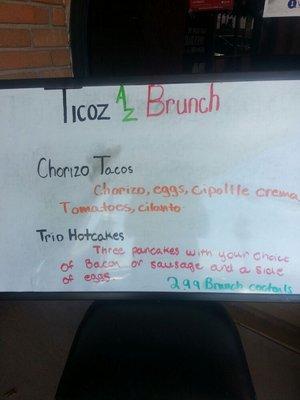 Ticoz AZ Brunch
Chorizo Tacos
Chorizo, eggs, cipoltle crema
Tomatoes, cilanto
Trio Hotcakes
Three pancakes with your choice
of Bacon or sausage and a side
of eggs
2.99 Brunch coctails